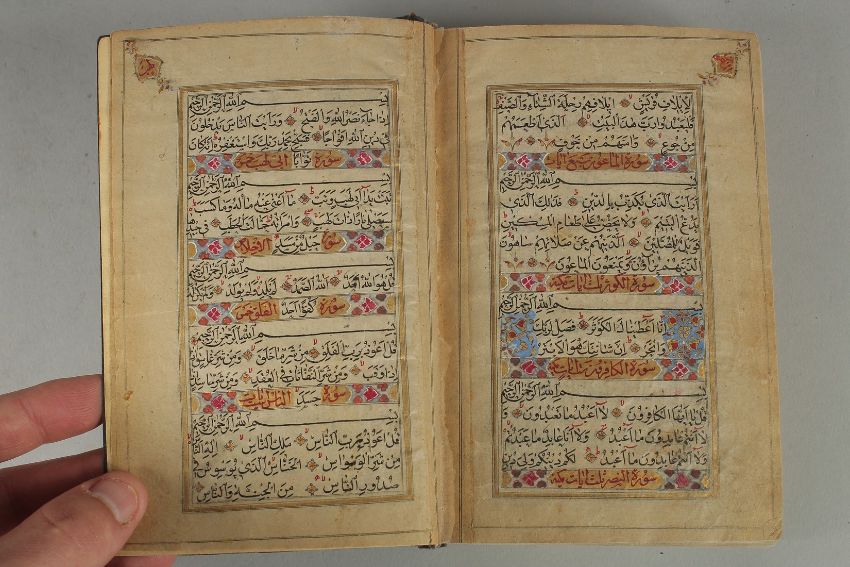 لإيلاف قريش إيلافهم رحلة الشتاء والصيف
فليعبدوا رب هذا البيت الذي أطعمهم
من جوع وآمنهم من خوف
سورة الماعون سبع آيات
بسم الله الرحمن الرحيم
أرأيت الذي يكذب بالدين فذلك الذي
يدع اليتيم ولا يحض على طعام المسكين
فويل للمصلين الذين هم عن صلاتهم ساهون
الذين هم يراؤن ويمنعون الماعون
سورة الكوثر ثلث آيات مكية
بسم الله الرحمن الرحيم
إنا أعطيناك الكوثر فصل لربك
وانحر إن شانئك هو الأبتر
سورة الكافرون ست آيات مكية
بسم الله الرحمن الرحيم
قل يا أيها الكافرون لا أعبد ما تعبدون و
لا أنتم عابدون ما أعبد ولا أنا عابد ما عبدتم
ولا أنتم عابدون ما أعبد لكم دينكم ولي دين
سورة النصر ثلث آيات مكية
بسم الله الرحمن الرحيم
إذا جاء نصر الله والفتح ورأيت الناس يدخلون
في دين الله أفواجا فسبح بحمد ربك واستغفره إنه كان
سورة توابا أبي لهب خمس
بسم الله الرحمن الرحيم
تبت يدا أبي لهب وتب ما أغنى عنه ماله وما كسب
سيصلى نارا ذات لهب وامرأته حمالة الحطب في جيدها
سورة حبل من مسد الإخلاص
بسم الله الرحمن الرحيم
قل هو الله أحد الله الصمد لم يلد ولم يولد ولم يكن له
سورة كفوا أحد الفلق خمس
بسم الله الرحمن الرحيم
قل أعوذ برب الفلق من شر ما خلق ومن شر غاسق
إذا وقب ومن شر النفاثات في العقد ومن شر حاسد إذا
سورة حسد الناس
بسم الله الرحمن الرحيم
قل أعوذ برب الناس ملك الناس إله الناس
من شر الوسواس الخناس الذي يوسوس في
صدور الناس من الجنة والناس